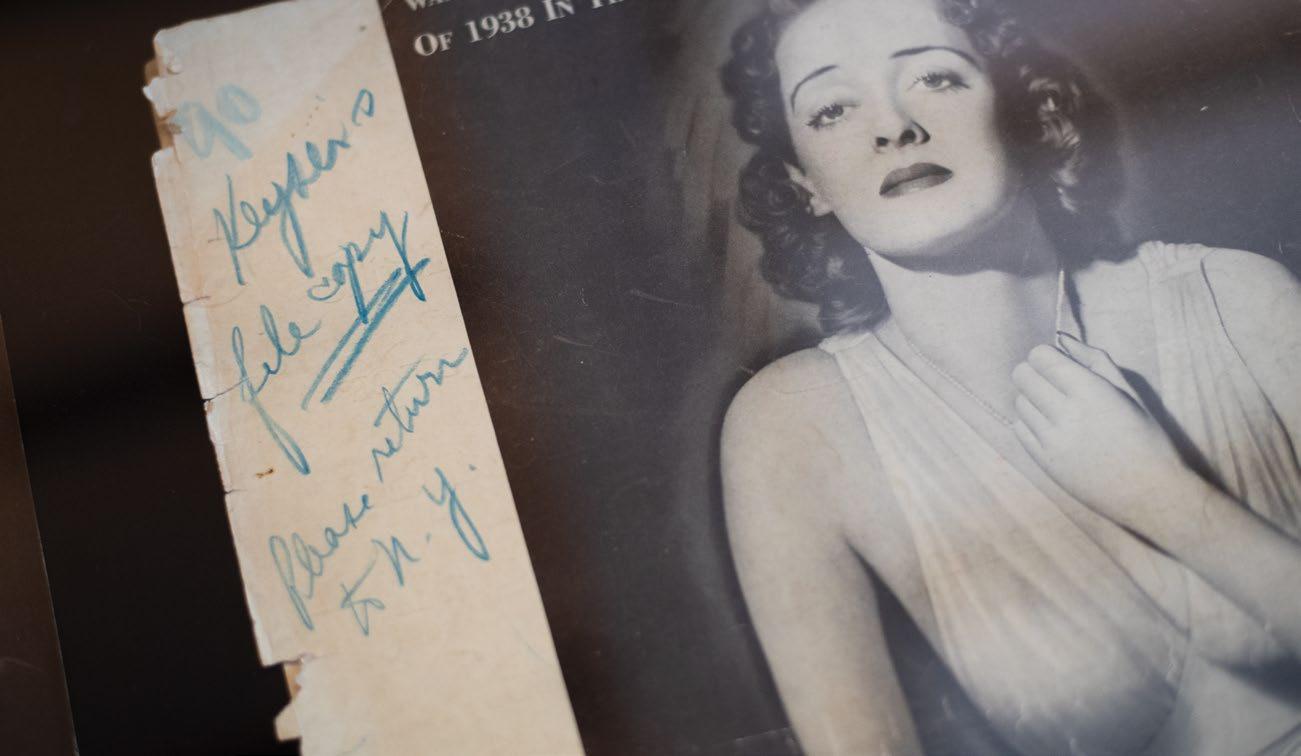 OF 1938 IN
90
Keyser's
file copy
Please return
to N.Y.